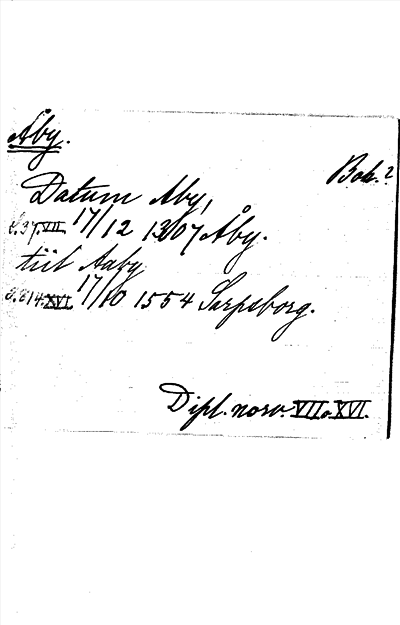 Åby.
Boh.?
Datum Aby,
s. 37. VII. 17/12 1307 Åby.
tiil Aaby
s. 814. XVI. 17/10 1554 Sarpsborg.
Dipl. norv. VII o. XVI.